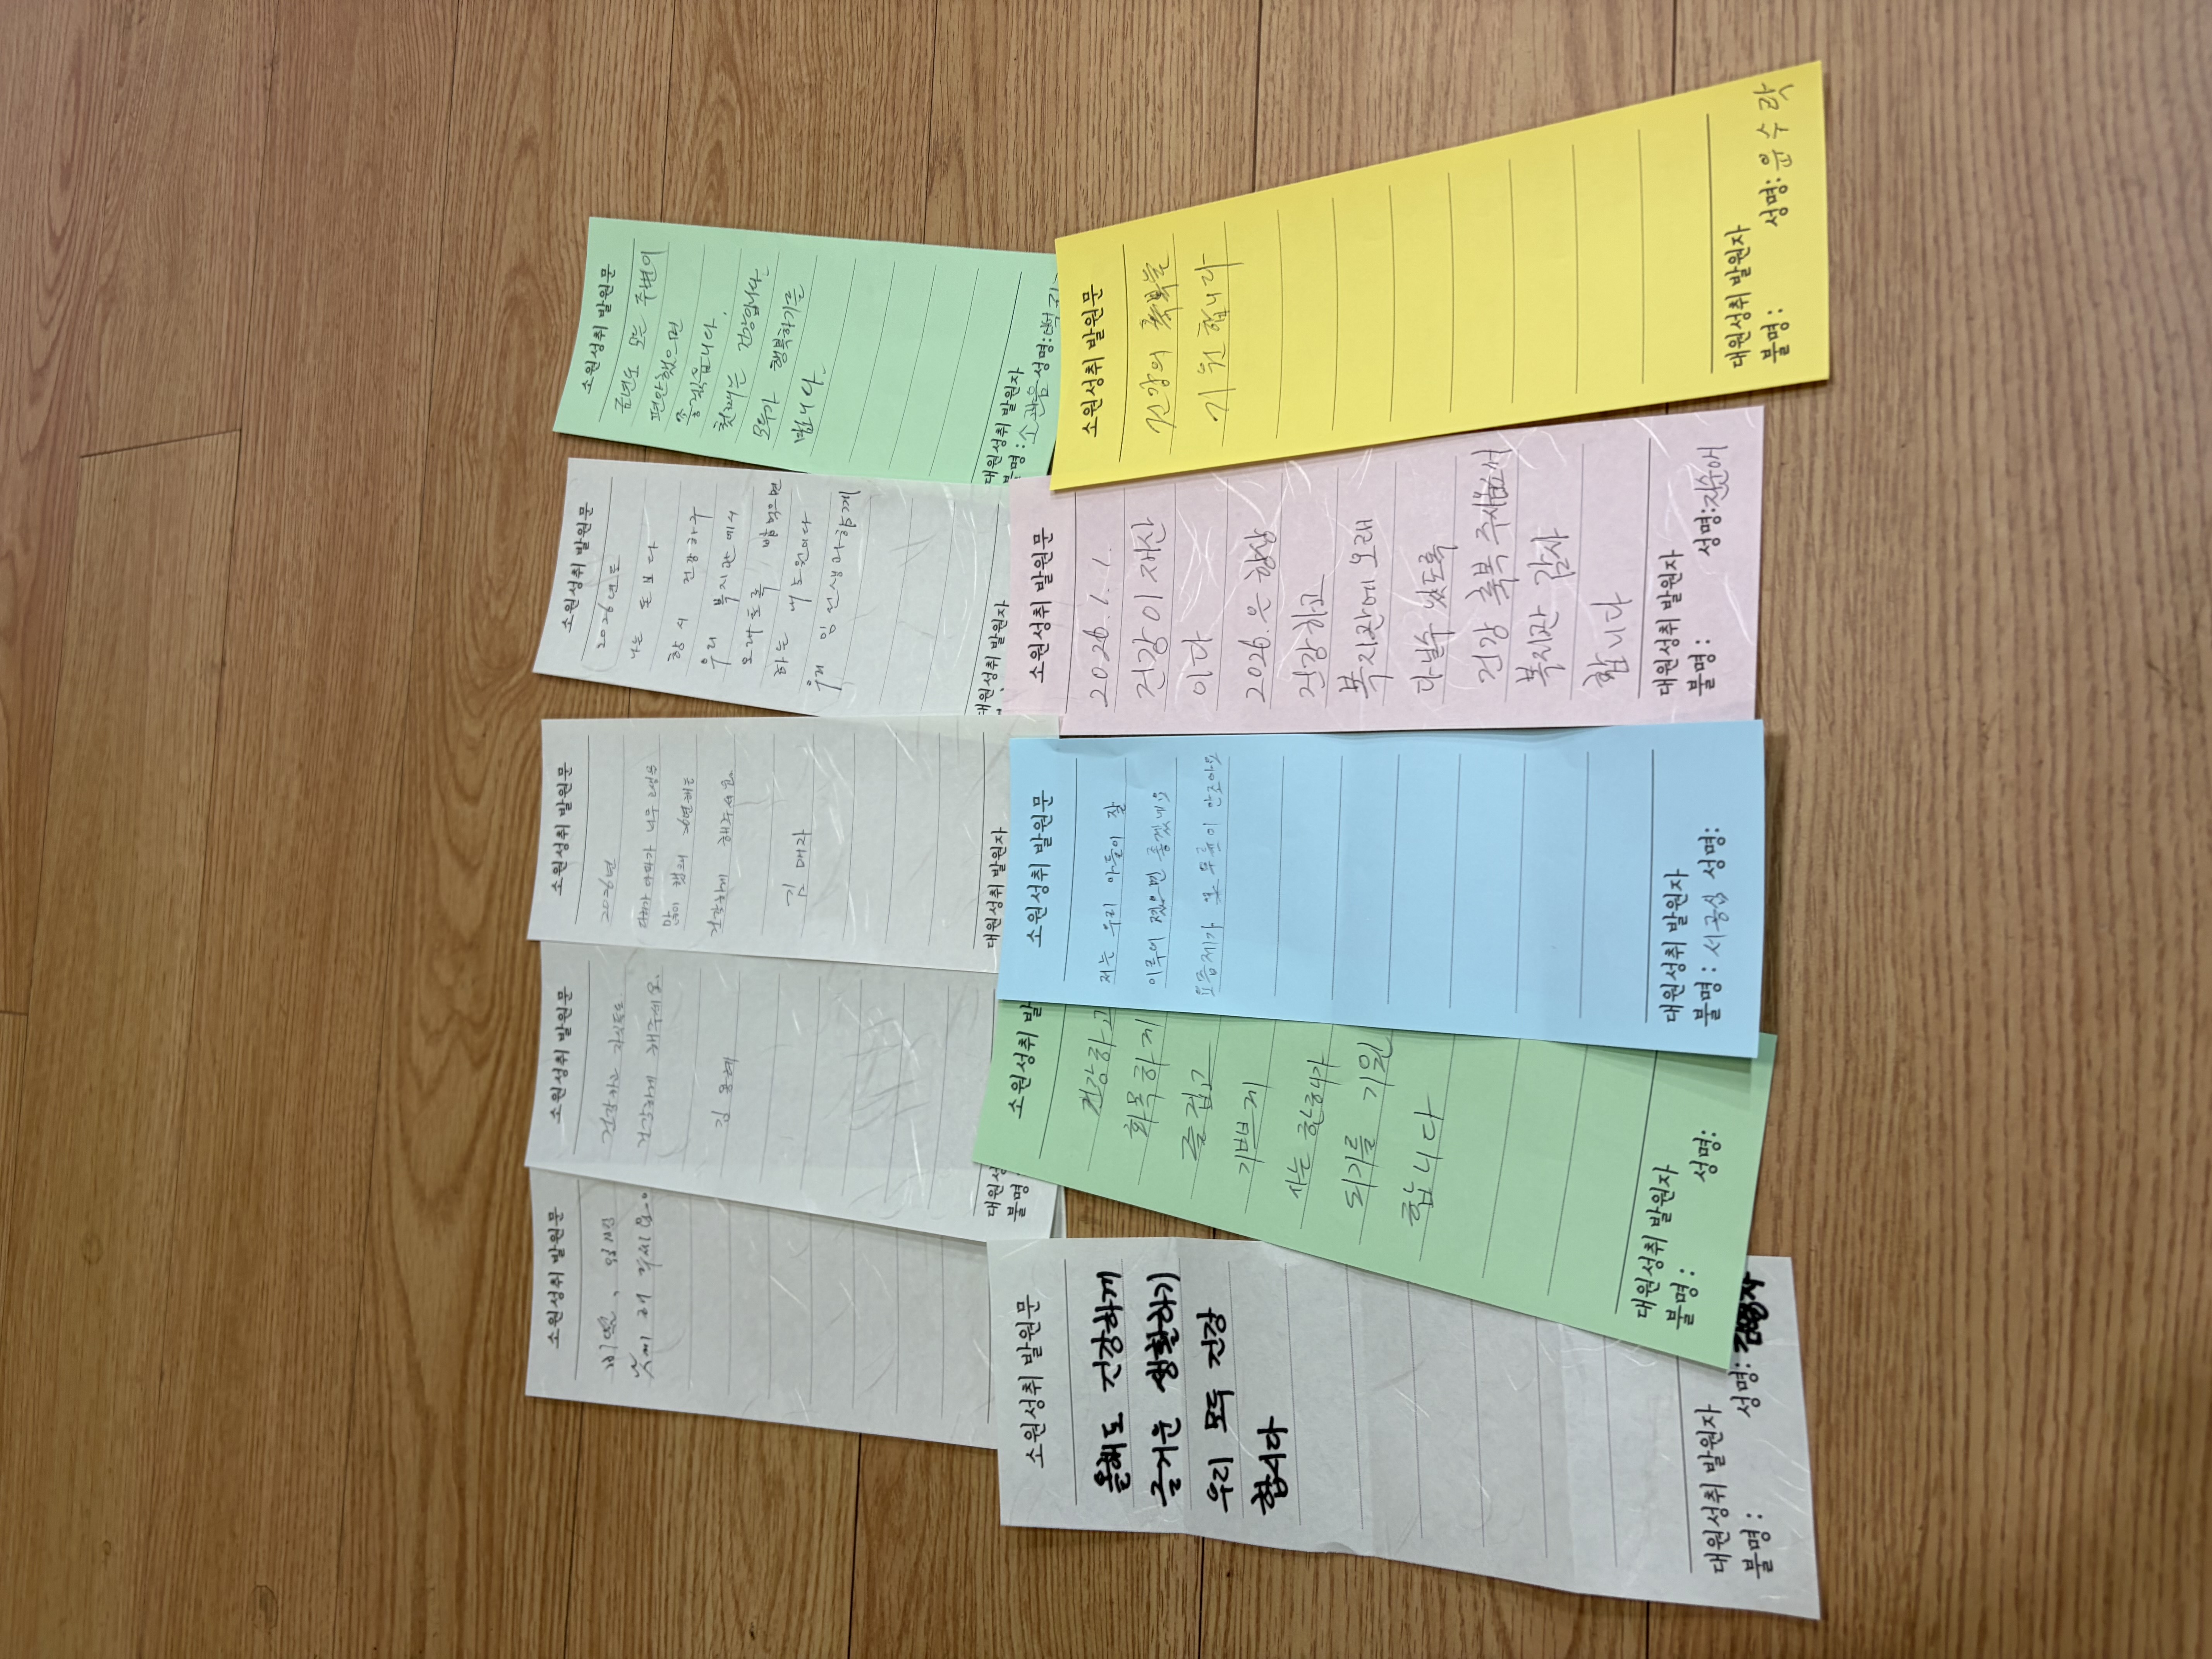 소원성취 발원문
올해도 건강하게
즐거운 생활하기
우리 모두 건강
합시다
대원성취 발원자
불명 :
성명:
소원성취 발
건강하고
화목하게
즐겁고
기쁘게
사는 한해가
되기를 기원
합니다
대원성취 발원자
불명 :
성명:
소원성취 발원문
저는 우리 아들이 잘
이루어 젔으면 좋겠네요
요즘제가 무릎이 안조아요
대원성취 발원자
불명 : 서공심 성명:
소원성취 발원문
2026.1.1.
건강이 재산
이다
2026.은 항상
건강하고
복지관에 오래
다닐수 있도록
건강 축복 주시옵소서
복지관 감사
합니다
대원성취 발원자
불명 :
성명:
소원성취 발원문
건강의 축복을
기원합니다
대원성취 발원자
불명 :
성명: 윤수락
소원성취 발원문
주세요
소원성취 발원문
건강하고 자식들도
건강하게 해주세요.
김
대원성
불명
소원성취 발원문
2026년
아파가 너무
많이 26년에는
건강하게 해주세요
김매자
대원성취 발원자
소원성취 발원문
2026년도
나는 보다
항시 건강하구
우리 복지관에서
오래도록 밥먹으면
하는 내 소원이다
대원성취 발원자
소원성취 발원문
금년도 모든 주변이
편안했으면
좋겠습니다.
첫째는 건강입니다
모두가 행복하기를
빕니다.
대원성취 발원자
불명 : 소관음 성명: